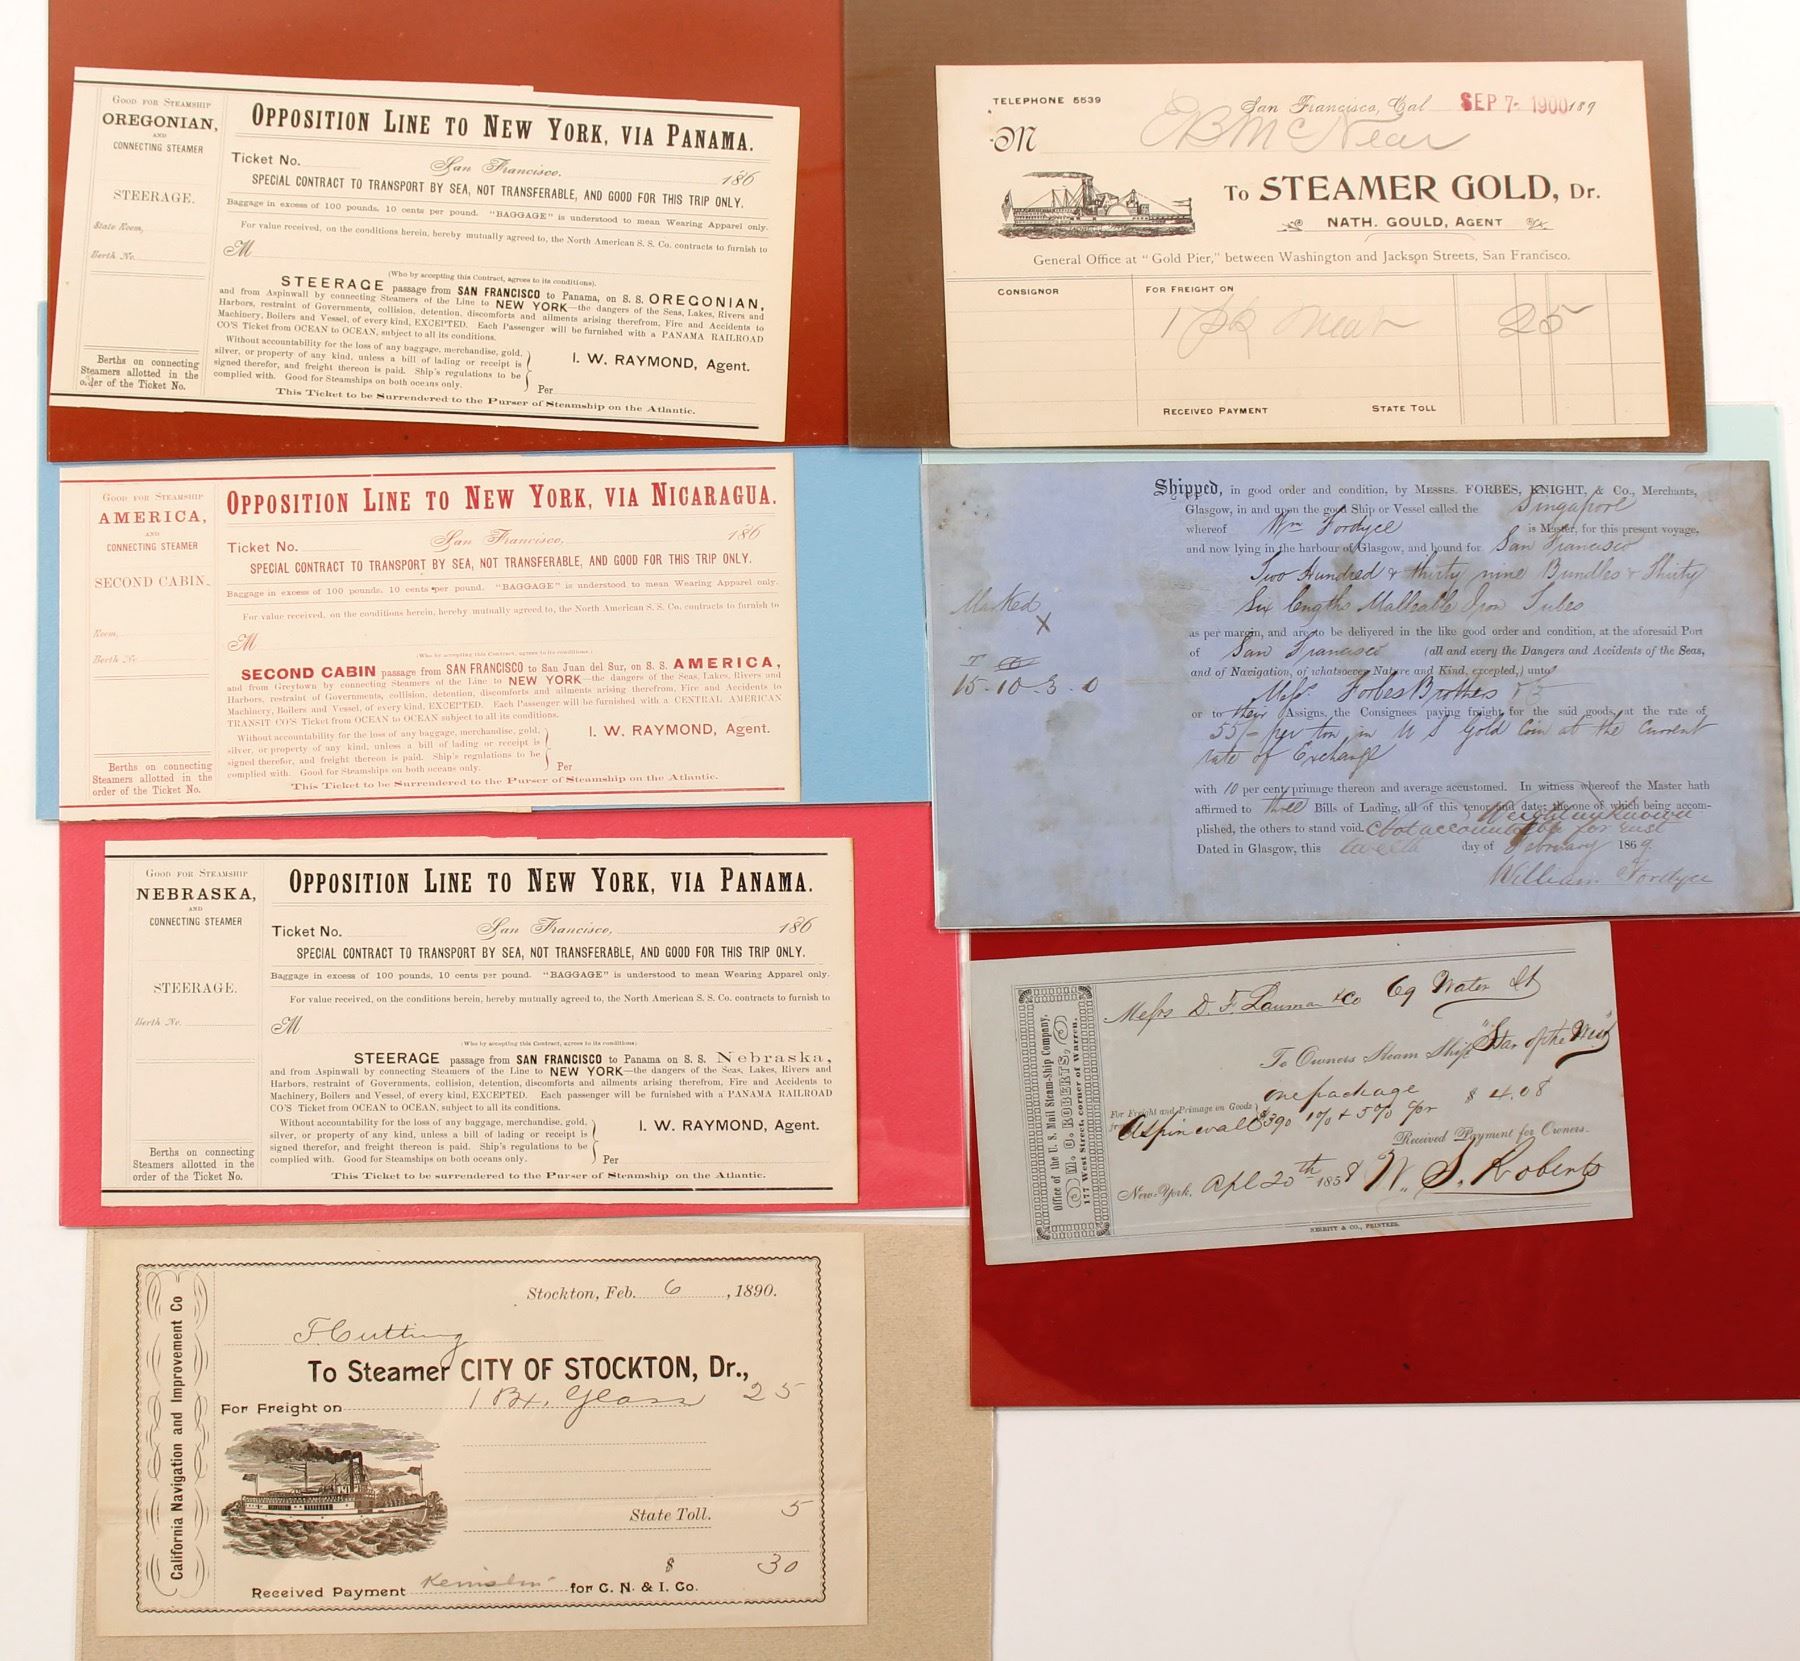 GOOD FOR STEAMSHIP
OREGONIAN,
AND
CONNECTING STEAMER
STEERAGE.
State Room,
Berth No.
Berths on connecting
Steamers allotted in the
order of the Ticket No.
OPPOSITION LINE TO NEW YORK, VIA PANAMA.
Ticket No. San Francisco, 186
SPECIAL CONTRACT TO TRANSPORT BY SEA, NOT TRANSFERABLE, AND GOOD FOR THIS TRIP ONLY.
Baggage in excess of 100 pounds, 10 cents per pound. "BAGGAGE" is understood to mean Wearing Apparel only.
For value received, on the conditions herein, hereby mutually agreed to, the North American S. S. Co. contracts to furnish to
M
(Who by accepting this Contract, agrees to its conditions).
STEERAGE passage from SAN FRANCISCO to Panama, on S. S. OREGONIAN,
and from Aspinwall by connecting Steamers of the Line to NEW YORK—the dangers of the Seas, Lakes, Rivers and
Harbors, restraint of Governments, collision, detention, discomforts and ailments arising therefrom, Fire and Accidents to
Machinery, Boilers and Vessel, of every kind, EXCEPTED. Each Passenger will be furnished with a PANAMA RAILROAD
CO'S Ticket from OCEAN to OCEAN, subject to all its conditions.
Without accountability for the loss of any baggage, merchandise, gold,
silver, or property of any kind, unless a bill of lading or receipt is
signed therefor, and freight thereon is paid. Ship's regulations to be
complied with. Good for Steamships on both oceans only.
I. W. RAYMOND, Agent.
Per
This Ticket to be Surrendered to the Purser of Steamship on the Atlantic.
TELEPHONE 5539
San Francisco, Cal SEP 7- 1900 189
M E B McNear
TO STEAMER GOLD, DR.
NATH. GOULD, AGENT
General Office at "Gold Pier," between Washington and Jackson Streets, San Francisco.
CONSIGNOR FOR FREIGHT ON
1 pk Meat 25
RECEIVED PAYMENT STATE TOLL
GOOD FOR STEAMSHIP
AMERICA,
AND
CONNECTING STEAMER
SECOND CABIN.
Room,
Berth No
Berths on connecting
Steamers allotted in the
order of the Ticket No.
OPPOSITION LINE TO NEW YORK, VIA NICARAGUA.
Ticket No. San Francisco, 186
SPECIAL CONTRACT TO TRANSPORT BY SEA, NOT TRANSFERABLE, AND GOOD FOR THIS TRIP ONLY.
Baggage in excess of 100 pounds, 10 cents per pound. "BAGGAGE" is understood to mean Wearing Apparel only.
For value received, on the conditions herein, hereby mutually agreed to, the North American S. S. Co. contracts to furnish to
M
(Who by accepting this Contract, agrees to its conditions.)
SECOND CABIN passage from SAN FRANCISCO to San Juan del Sur, on S. S. AMERICA,
and from Greytown by connecting Steamers of the Line to NEW YORK—the dangers of the Seas, Lakes, Rivers and
Harbors, restraint of Governments, collision, detention, discomforts and ailments arising therefrom, Fire and Accidents to
Machinery, Boilers and Vessel, of every kind, EXCEPTED. Each Passenger will be furnished with a CENTRAL AMERICAN
TRANSIT CO'S Ticket from OCEAN to OCEAN subject to all its conditions.
Without accountability for the loss of any baggage, merchandise, gold,
silver, or property of any kind, unless a bill of lading or receipt is
signed therefor, and freight thereon is paid. Ship's regulations to be
complied with. Good for Steamships on both oceans only.
I. W. RAYMOND, Agent.
Per
This Ticket to be Surrendered to the Purser of Steamship on the Atlantic.
Shipped, in good order and condition, by MESSRS. FORBES, KNIGHT, & Co., Merchants,
Glasgow, in and upon the good Ship or Vessel called the Singapore
whereof Wm Fordyce is Master, for this present voyage,
and now lying in the harbour of Glasgow, and bound for San Francisco
Two Hundred & thirty nine Bundles & Thirty
Six lengths Malleable Iron Tubes
Marked
X
15-10-3-0
as per margin, and are to be delivered in the like good order and condition, at the aforesaid Port
of San Francisco (all and every the Dangers and Accidents of the Seas,
and of Navigation, of whatsoever Nature and Kind, excepted,) unto
Messrs Forbes Brothers
or to their Assigns, the Consignees paying freight for the said goods, at the rate of
55/- per ton in U S Gold Coin at the Current
rate of Exchange
with 10 per cent. primage thereon and average accustomed. In witness whereof the Master hath
affirmed to three Bills of Lading, all of this tenor and date; the one of which being accom-
Weight unknown
plished, the others to stand void. & not accountable for rust
Dated in Glasgow, this day of February 1869.
William Fordyce
GOOD FOR STEAMSHIP
NEBRASKA,
AND
CONNECTING STEAMER
STEERAGE.
Berth No.
Berths on connecting
Steamers allotted in the
order of the Ticket No.
OPPOSITION LINE TO NEW YORK, VIA PANAMA.
Ticket No. San Francisco, 186
SPECIAL CONTRACT TO TRANSPORT BY SEA, NOT TRANSFERABLE, AND GOOD FOR THIS TRIP ONLY.
Baggage in excess of 100 pounds, 10 cents per pound. "BAGGAGE" is understood to mean Wearing Apparel only.
For value received, on the conditions herein, hereby mutually agreed to, the North American S. S. Co. contracts to furnish to
M
(Who by accepting this Contract, agrees to its conditions)
STEERAGE passage from SAN FRANCISCO to Panama on S. S. Nebraska,
and from Aspinwall by connecting Steamers of the Line to NEW YORK—the dangers of the Seas, Lakes, Rivers and
Harbors, restraint of Governments, collision, detention, discomforts and ailments arising therefrom, Fire and Accidents to
Machinery, Boilers and Vessel, of every kind, EXCEPTED. Each passenger will be furnished with a PANAMA RAILROAD
CO'S Ticket from OCEAN to OCEAN, subject to all its conditions.
Without accountability for the loss of any baggage, merchandise, gold,
silver, or property of any kind, unless a bill of lading or receipt is
signed therefor, and freight thereon is paid. Ship's regulations to be
complied with. Good for Steamships on both oceans only.
I. W. RAYMOND, Agent.
Per
This Ticket to be Surrendered to the Purser of Steamship on the Atlantic.
Office of the U. S. Mail Steam-Ship Company.
M. O. ROBERTS,
177 West Street, corner of Warren.
Messrs D. F. Lauman & Co 69 Water St
To Owners Steam Ship "Star of the West"
one package $ 4.08
For Freight and Primage on Goods
from Aspinwall $390 1% + 5% Received Payment for Owners.
New-York, Apl 20th 1858 W. S. Roberts
NESBITT & CO., PRINTERS.
California Navigation and Improvement Co
Stockton, Feb. 6, 1890.
F Cutting
To Steamer CITY OF STOCKTON, Dr.,
For Freight on 1 Bx. Glass 25
State Toll. 5
$ 30
Received Payment for C. N. & I. Co.